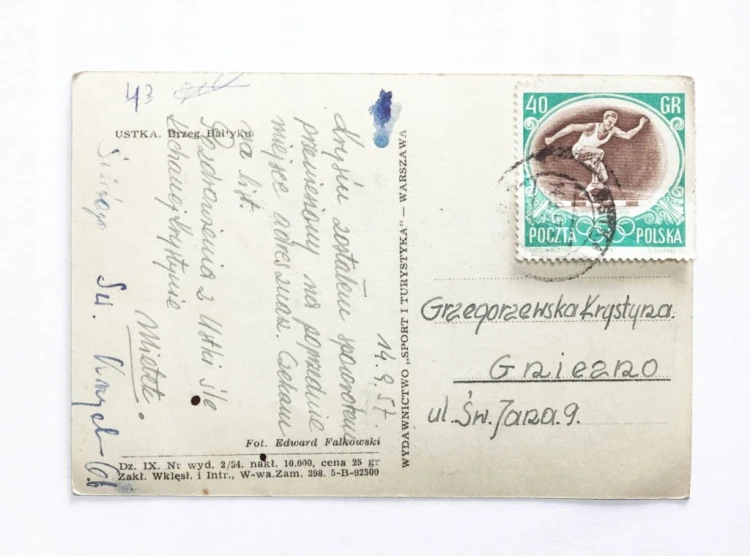 43
USTKA. Brzeg Bałtyku
14.9.57
Krysiu zostałem spowrotem
przeniesiony na poprzednie
miejsce adres znasz. Czekam
na list.
Pozdrowienia z Ustki śle
kochanej Krystynie
Mietek.
Fot. Edward Falkowski
Dz. IX. Nr wyd. 2/54. nakł. 10.000, cena 25 gr
Zakł. Wklęsł. i Intr., W-wa.Zam. 398. 5-B-92300
WYDAWNICTWO „SPORT I TURYSTYKA" — WARSZAWA
40 GR
POCZTA POLSKA
Grzegorzewska Krystyna.
Gniezno
ul. Św. Jana. 9.